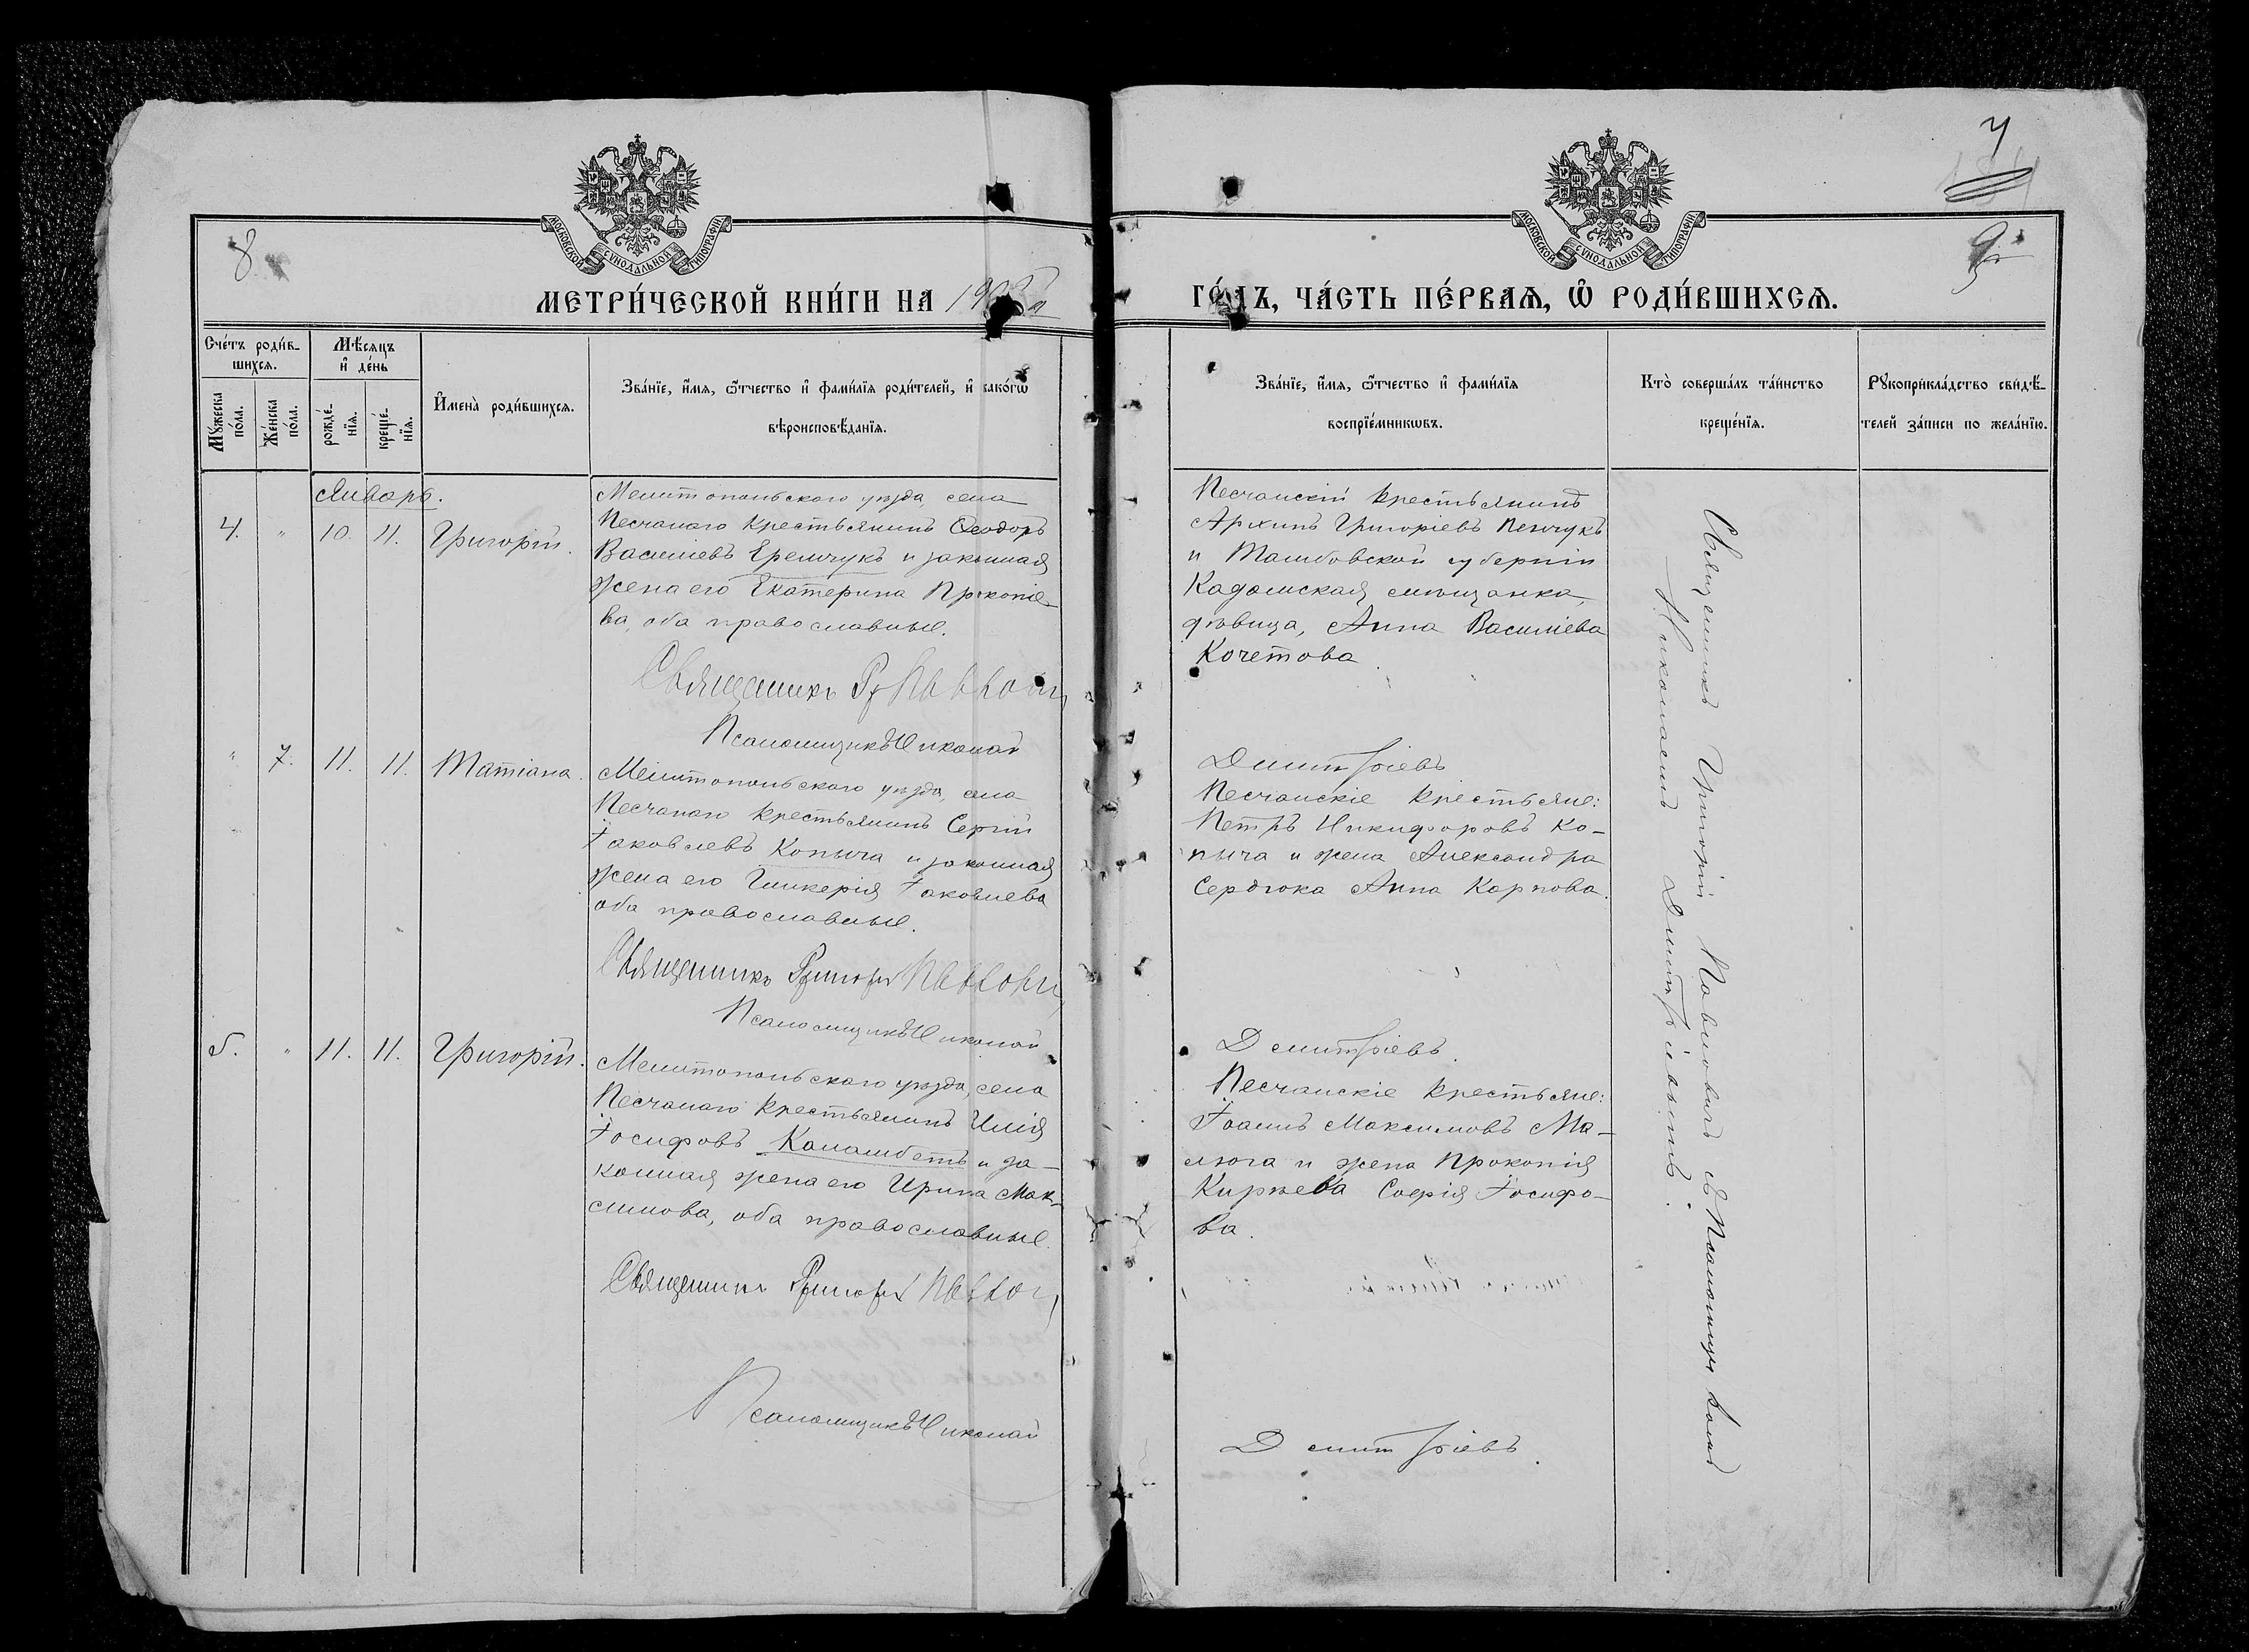 МОСКОВСКОЙ СУНОДАЛЬНОЙ ТИПОГРАФІИ
8.
МЕТРИ́ЧЕСКОЙ КНИ́ГИ НА
Сче́тъ роди́в-
шихсѧ.
Мѣ́сѧцъ
и҆ де́нь
Мꙋ́жеска
по́ла.
Же́нска
по́ла.
рожде́-
нїѧ.
креще́-
нїѧ.
И҆мена̀ роди́вшихсѧ.
Зва́нїе, и҆́мѧ, ѻ҆́тчество и҆ фами́лїѧ роди́телей, и҆ како́гѡ
вѣроисповѣ́данїѧ.
Январь.
4. " 10. 11. Григорій.
Мелитопольскаго уѣзда, села
Песчанаго крестьянинъ Ѳеодоръ
Василіевъ Еремчукъ и законная
жена его Екатерина Прокопіе-
ва, оба православные.
Священникъ Гр Павлович
Псаломщикъ Николай
" 7. 11. 11. Татіана.
Мелитопольскаго уѣзда, села
Песчанаго крестьянинъ Сергій
Іаковлевъ Копыча и законная
жена его Гликерія Іаковлева
оба православные.
Священникъ Григорій Павлович
Псаломщикъ Николай
5. " 11. 11. Григорій.
Мелитопольскаго уѣзда, села
Песчанаго крестьянинъ Илія
Іосифовъ Каламбетъ и за-
конная жена его Ирина Мак-
симова, оба православные.
Священникъ Григорій Павлович
Псаломщикъ Николай
МОСКОВСКОЙ СУНОДАЛЬНОЙ ТИПОГРАФІИ
9
ГО́ДЪ, ЧА́СТЬ ПЕ́РВАѦ, Ѡ҆ РОДИ́ВШИХСѦ.
Зва́нїе, и҆́мѧ, ѻ҆́тчество и҆ фами́лїѧ
воспрїе́мникѡвъ.
Кто̀ соверша́лъ та́инство
креще́нїѧ.
Рꙋкоприкла́дство свидѣ́-
телей за́писи по жела́нїю.
Песчанскій крестьянинъ
Архипъ Григоріевъ Пенчукъ
и Тамбовской губерніи
Кадомская мѣщанка,
дѣвица, Анна Василіева
Кочетова
Димитріевъ
Песчанскіе крестьяне:
Петръ Никифоровъ Ко-
пыча и жена Александра
Сердюка Анна Карпова.
Димитріевъ.
Песчанскіе крестьяне:
Іоаннъ Максимовъ Ма-
люга и жена Прокопія
Кирѣева Софія Іосифо-
ва.
Димитріевъ.
Священникъ Григорій Павловичъ съ Псаломщикомъ
Николаемъ Димитріевымъ.